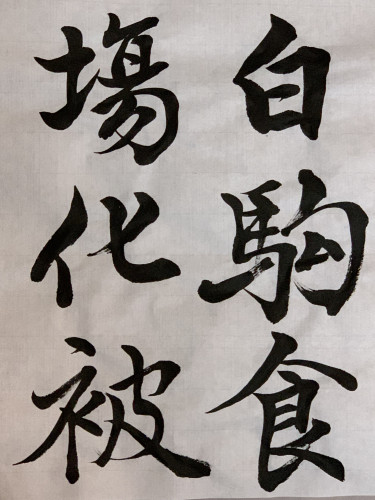 白駒食
場化被